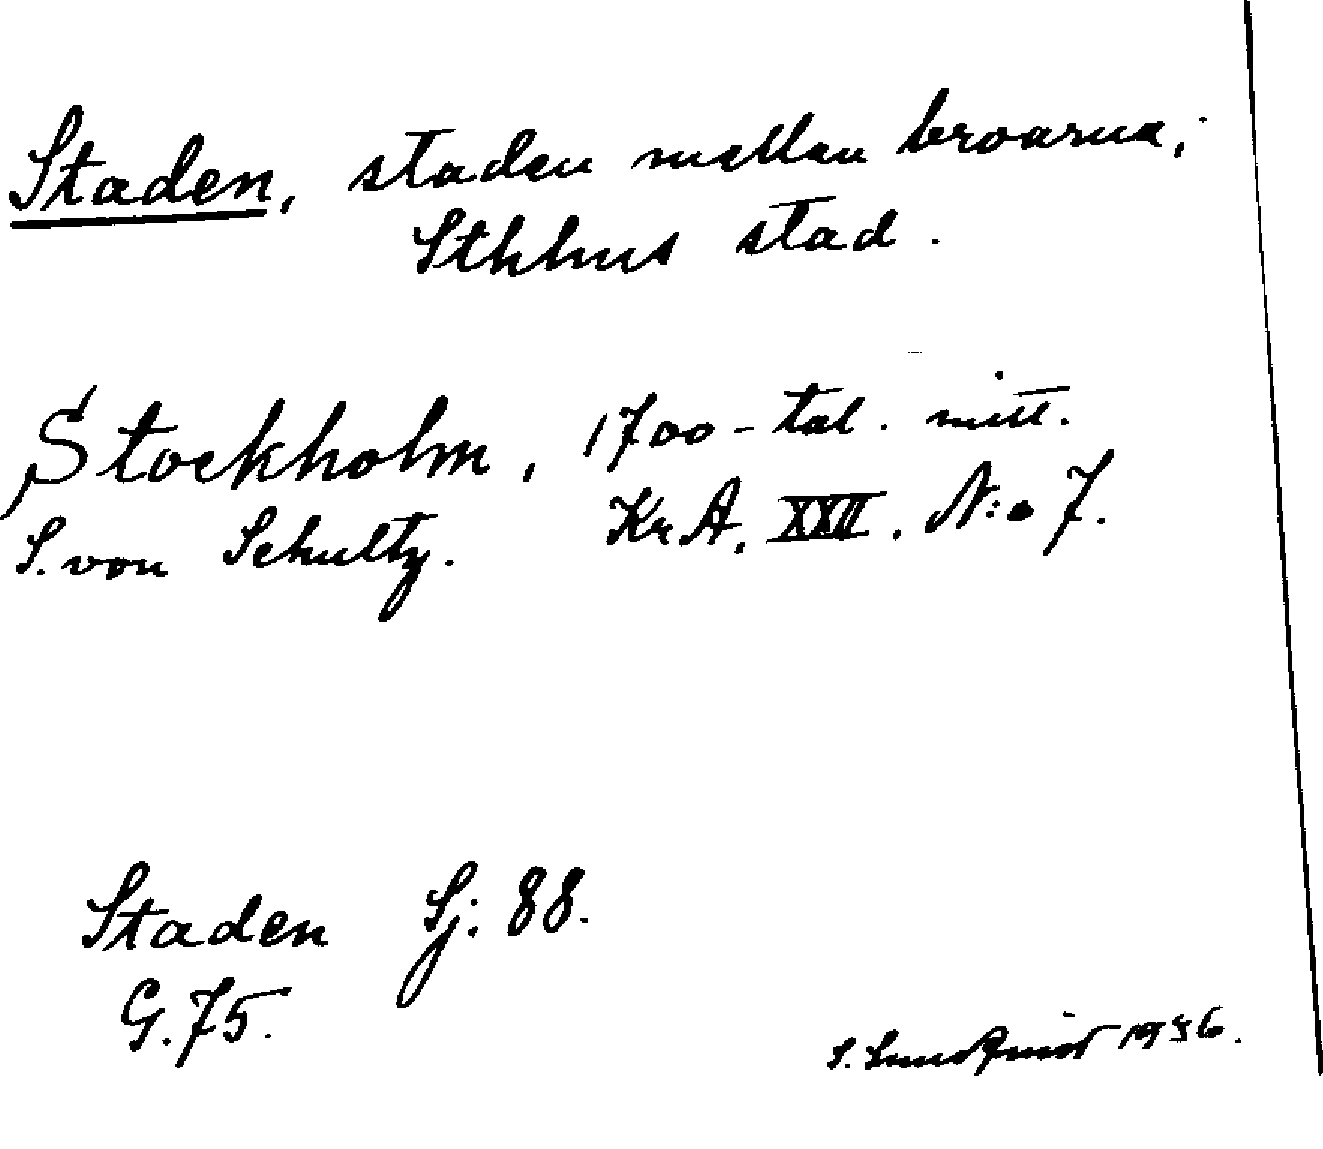 Staden, staden mellan broarna,
Sthlms stad.
Stockholm, 1700-tal. mitt.
S. von Schultz. Kr. A. XXII. N:o 7.
Staden Sj: 88.
G. 75.
S. Lundquist 1936.